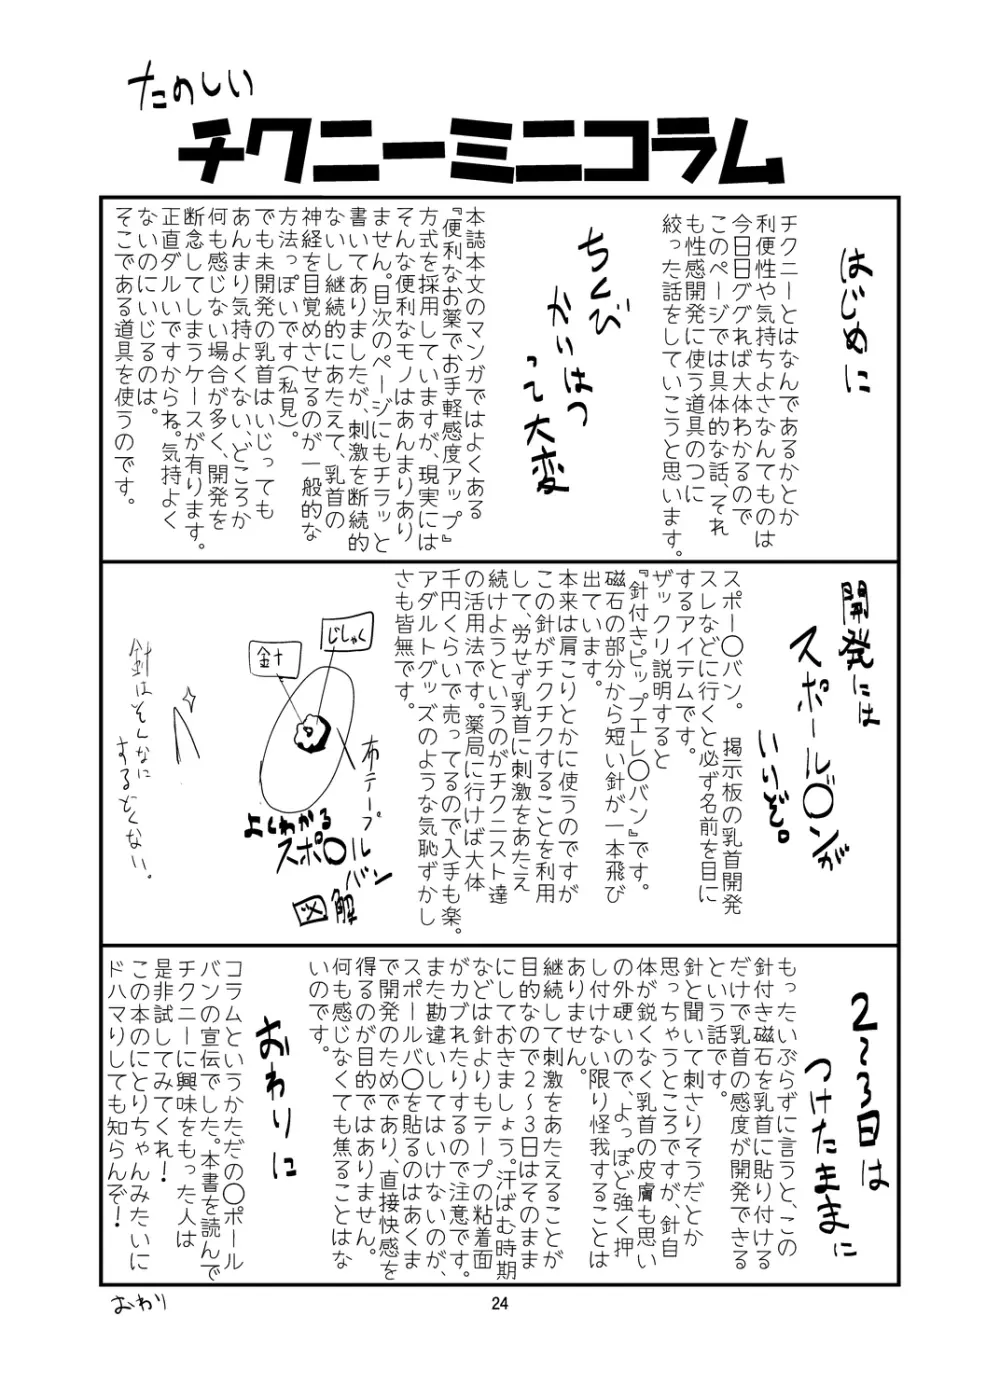 たのしい
チクニーミニコラム
はじめに
チクニーとはなんであるかとか
利便性や気持ちよさなんてものは
今日日ググれば大体わかるので
このページでは具体的な話、それ
も性感開発に使う道具のつに
絞った話をしていこうと思います。
ちくび
かいはつ
って大変
本誌本文のマンガではよくある
『便利なお薬でお手軽感度アップ』
方式を採用していますが、現実には
そんな便利なモノはあんまりあり
ません。目次のページにもチラッと
書いてありましたが、刺激を断続的
ないし継続的にあたえて、乳首の
神経を目覚めさせるのが一般的な
方法っぽいです(私見)。
でも未開発の乳首はいじっても
あんまり気持よくない、どころか
何も感じない場合が多く、開発を
断念してしまうケースが有ります。
正直ダルいですからね。気持よく
ないのにいじるのは。
そこである道具を使うのです。
開発には
スポール〇ンが
いいぞ。
スポー〇バン。 掲示板の乳首開発
スレなどに行くと必ず名前を目に
するアイテムです。
ザックリ説明すると
『針付きピップエレ〇バン』です。
磁石の部分から短い針が一本飛び
出ています。
本来は肩こりとかに使うのですが
この針がチクチクすることを利用
して、労せず乳首に刺激をあたえ
続けようというのがチクニスト達
の活用法です。薬局に行けば大体
千円くらいで売ってるので入手も楽。
アダルトグッズのような気恥ずかし
さも皆無です。
じしゃく
針
布テープ
よくわかる
スポ〇ル
バン
図解
針はそんなに
するどくない。
2〜3日は
つけたままに
もったいぶらずに言うと、この
針付き磁石を乳首に貼り付ける
だけで乳首の感度が開発できる
という話です。
針と聞いて刺さりそうだとか
思っちゃうところですが、針自
体が鋭くなく乳首の皮膚も思い
の外硬いので、よっぽど強く押
し付けない限り怪我することは
ありません。
継続して刺激をあたえることが
目的なので2〜3日はそのまま
にしておきましょう。汗ばむ時期
などは針よりもテープの粘着面
がカブれたりするので注意です。
また勘違いしてはいけないのが、
スポールバ〇を貼るのはあくま
で開発のためであり、直接快感を
得るのが目的ではありません。
何も感じなくても焦ることはな
いのです。
おわりに
コラムというかただの〇ポール
バンの宣伝でした。本書を読んで
チクニーに興味をもった人は
是非試してみてくれ!
この本のにとりちゃんみたいに
ドハマりしても知らんぞ!
おわり
24